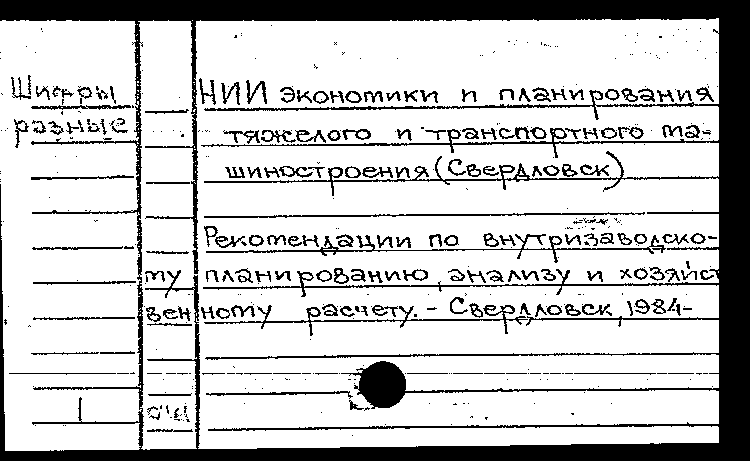 Шифры
разные
НИИ экономики и планирования
тяжелого и транспортного ма-
шиностроения (Свердловск)
Рекомендации по внутризаводско-
му планированию, анализу и хозяйст
венному расчету. - Свердловск, 1984-
1